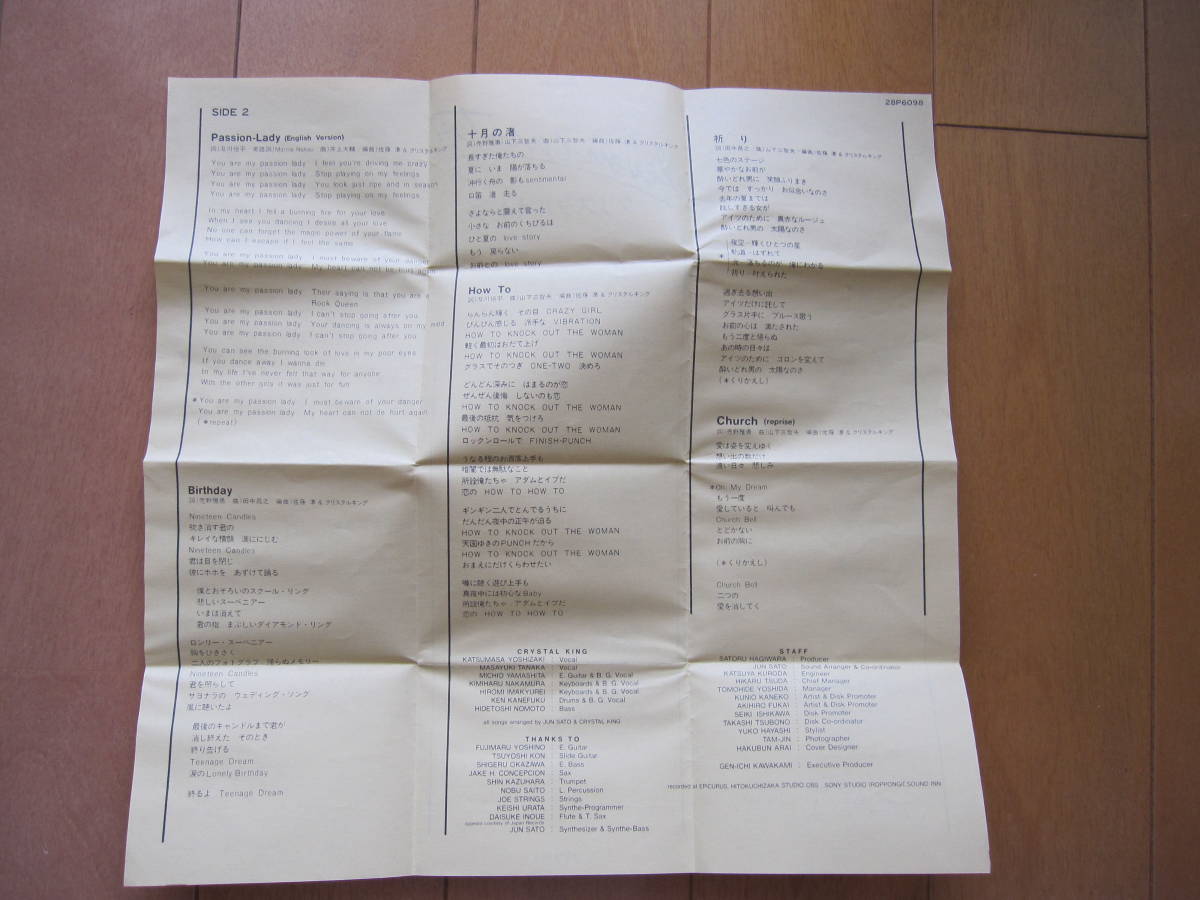 SIDE 2
Passion-Lady (English Version)
You are my passion lady I feel you're driving me crazy
You are my passion lady Stop playing on my feelings
You are my passion lady You look just ripe and in season
You are my passion lady Stop playing on my feelings
In my heart I fell a burning fire for your love
When I see you dancing I desire all your love
No one can forget the magic power of your flame
How can I escape if I feel the same
You are my passion lady I must beware of your danger
You are my passion lady My heart can not be hurt
You are my passion lady Their saying is that you are a
Rock Queen
You are my passion lady I can't stop going after you
You are my passion lady Your dancing is always on my mind
You are my passion lady I can't stop going after you
You can see the burning look of love in my poor eyes
If you dance away I wanna die
In my life I've never felt that way for anyone
With the other girls it was just for fun
*You are my passion lady I must beware of your danger
You are my passion lady My heart can not de hurt again
(*repeat)
Birthday
詞)売野雅勇 曲)田中昌之 編曲)佐藤 準 & クリスタルキング
Nineteen Candles
吹き消す君の
キレイな横顔 涙ににじむ
Nineteen Candles
君は目を閉じ
彼にホホを あずけて踊る
僕とおそろいのスクール・リング
悲しいスーベニアー
いまは消えて
君の指 まぶしいダイアモンド・リング
ロンリー・スーベニアー
胸をひきさく
二人のフォトグラフ 帰らぬメモリー
Nineteen Candles
君を照らして
サヨナラの ウェディング・ソング
風に聴いたよ
最後のキャンドルまで君が
消し終えた そのとき
終り告げる
Teenage Dream
涙のLonely Birthday
終るよ Teenage Dream
十月の渚
詞)売野雅勇・山下三智夫 曲)山下三智夫 編曲)佐藤 準 & クリスタルキング
長すぎた俺たちの
夏に いま 陽が落ちる
沖行く舟の 影もsentimental
口笛 渚 走る
さよならと震えて言った
小さな お前のくちびるは
ひと夏の love story
もう 戻らない
お前との love story
How To
詞)及川恒平 曲)山下三智夫 編曲)佐藤 準 & クリスタルキング
らんらん輝く その目 CRAZY GIRL
びんびん感じる 派手な VIBRATION
HOW TO KNOCK OUT THE WOMAN
軽く最初はおだて上げ
HOW TO KNOCK OUT THE WOMAN
グラスでそのつぎ ONE-TWO 決めろ
どんどん深みに はまるのが恋
ぜんぜん後悔 しないのも恋
HOW TO KNOCK OUT THE WOMAN
最後の抵抗 気をつけろ
HOW TO KNOCK OUT THE WOMAN
ロックンロールで FINISH-PUNCH
うなる程のお洒落上手も
暗闇では無駄なこと
所詮俺たちゃ アダムとイブだ
恋の HOW TO HOW TO
ギンギン二人でとんでるうちに
だんだん夜中の正午が迫る
HOW TO KNOCK OUT THE WOMAN
天国ゆきのPUNCHだから
HOW TO KNOCK OUT THE WOMAN
おまえにだけくらわせたい
噂に聴く遊び上手も
真夜中には初心なBaby
所詮俺たちゃ アダムとイブだ
恋の HOW TO HOW TO
CRYSTAL KING
KATSUMASA YOSHIZAKI : Vocal
MASAYUKI TANAKA : Vocal
MICHIO YAMASHITA : E. Guitar & B. G. Vocal
KIMIHARU NAKAMURA : Keyboards & B. G. Vocal
HIROMI IMAKYUREI : Keyboards & B. G. Vocal
KEN KANEFUKU : Drums & B. G. Vocal
HIDETOSHI NOMOTO : Bass
all songs arranged by JUN SATO & CRYSTAL KING
THANKS TO
FUJIMARU YOSHINO : E. Guitar
TSUYOSHI KON : Slide Guitar
SHIGERU OKAZAWA : E. Bass
JAKE H. CONCEPCION : Sax
SHIN KAZUHARA : Trumpet
NOBU SAITO : L. Percussion
JOE STRINGS : Strings
KEISHI URATA : Synthe-Programmer
DAISUKE INOUE : Flute & T. Sax
appears courtesy of Japan Records
JUN SATO : Synthesizer & Synthe-Bass
28P6098
祈り
詞)田中昌之 曲)山下三智夫 編曲)佐藤 準 & クリスタルキング
七色のステージ
華やかなお前が
酔いどれ男に 笑顔ふりまき
今では すっかり お似合いなのさ
去年の夏までは
眩しすぎる女が
アイツのために 真赤なルージュ
酔いどれ男の 太陽なのさ
夜空一輝くひとつの星
軌道一はずれて
* 流一落ちるのが 俺にわかる
祈り 叶えられた
過ぎ去る想い出
アイツだけに託して
グラス片手に ブルース歌う
お前の心は 満たされた
もう二度と帰らぬ
あの時の日々は
アイツのために コロンを変えて
酔いどれ男の 太陽なのさ
(*くりかえし)
Church (reprise)
詞)売野雅勇 曲)山下三智夫 編曲)佐藤 準 & クリスタルキング
愛は姿を変えゆく
想い出の数だけ
遠い日々 悲しみ
*Oh My Dream
もう一度
愛していると 叫んでも
Church Bell
とどかない
お前の胸に
(*くりかえし)
Church Bell
二つの
愛を消してく
STAFF
SATORU HAGIWARA : Producer
JUN SATO : Sound Arranger & Co-ordinator
KATSUYA KURODA : Engineer
HIKARU TSUDA : Chief Manager
TOMOHIDE YOSHIDA : Manager
KUNIO KANEKO : Artist & Disk Promoter
AKIHIRO FUKAI : Artist & Disk Promoter
SEIKI ISHIKAWA : Disk Promoter
TAKASHI TSUBONO : Disk Co-ordinator
YUKO HAYASHI : Stylist
TAM-JIN : Photographer
HAKUBUN ARAI : Cover Designer
GEN-ICHI KAWAKAMI : Executive Producer
recorded at EPICURUS, HITOKUCHIZAKA STUDIO CBS SONY STUDIO (ROPPONGI), SOUND INN